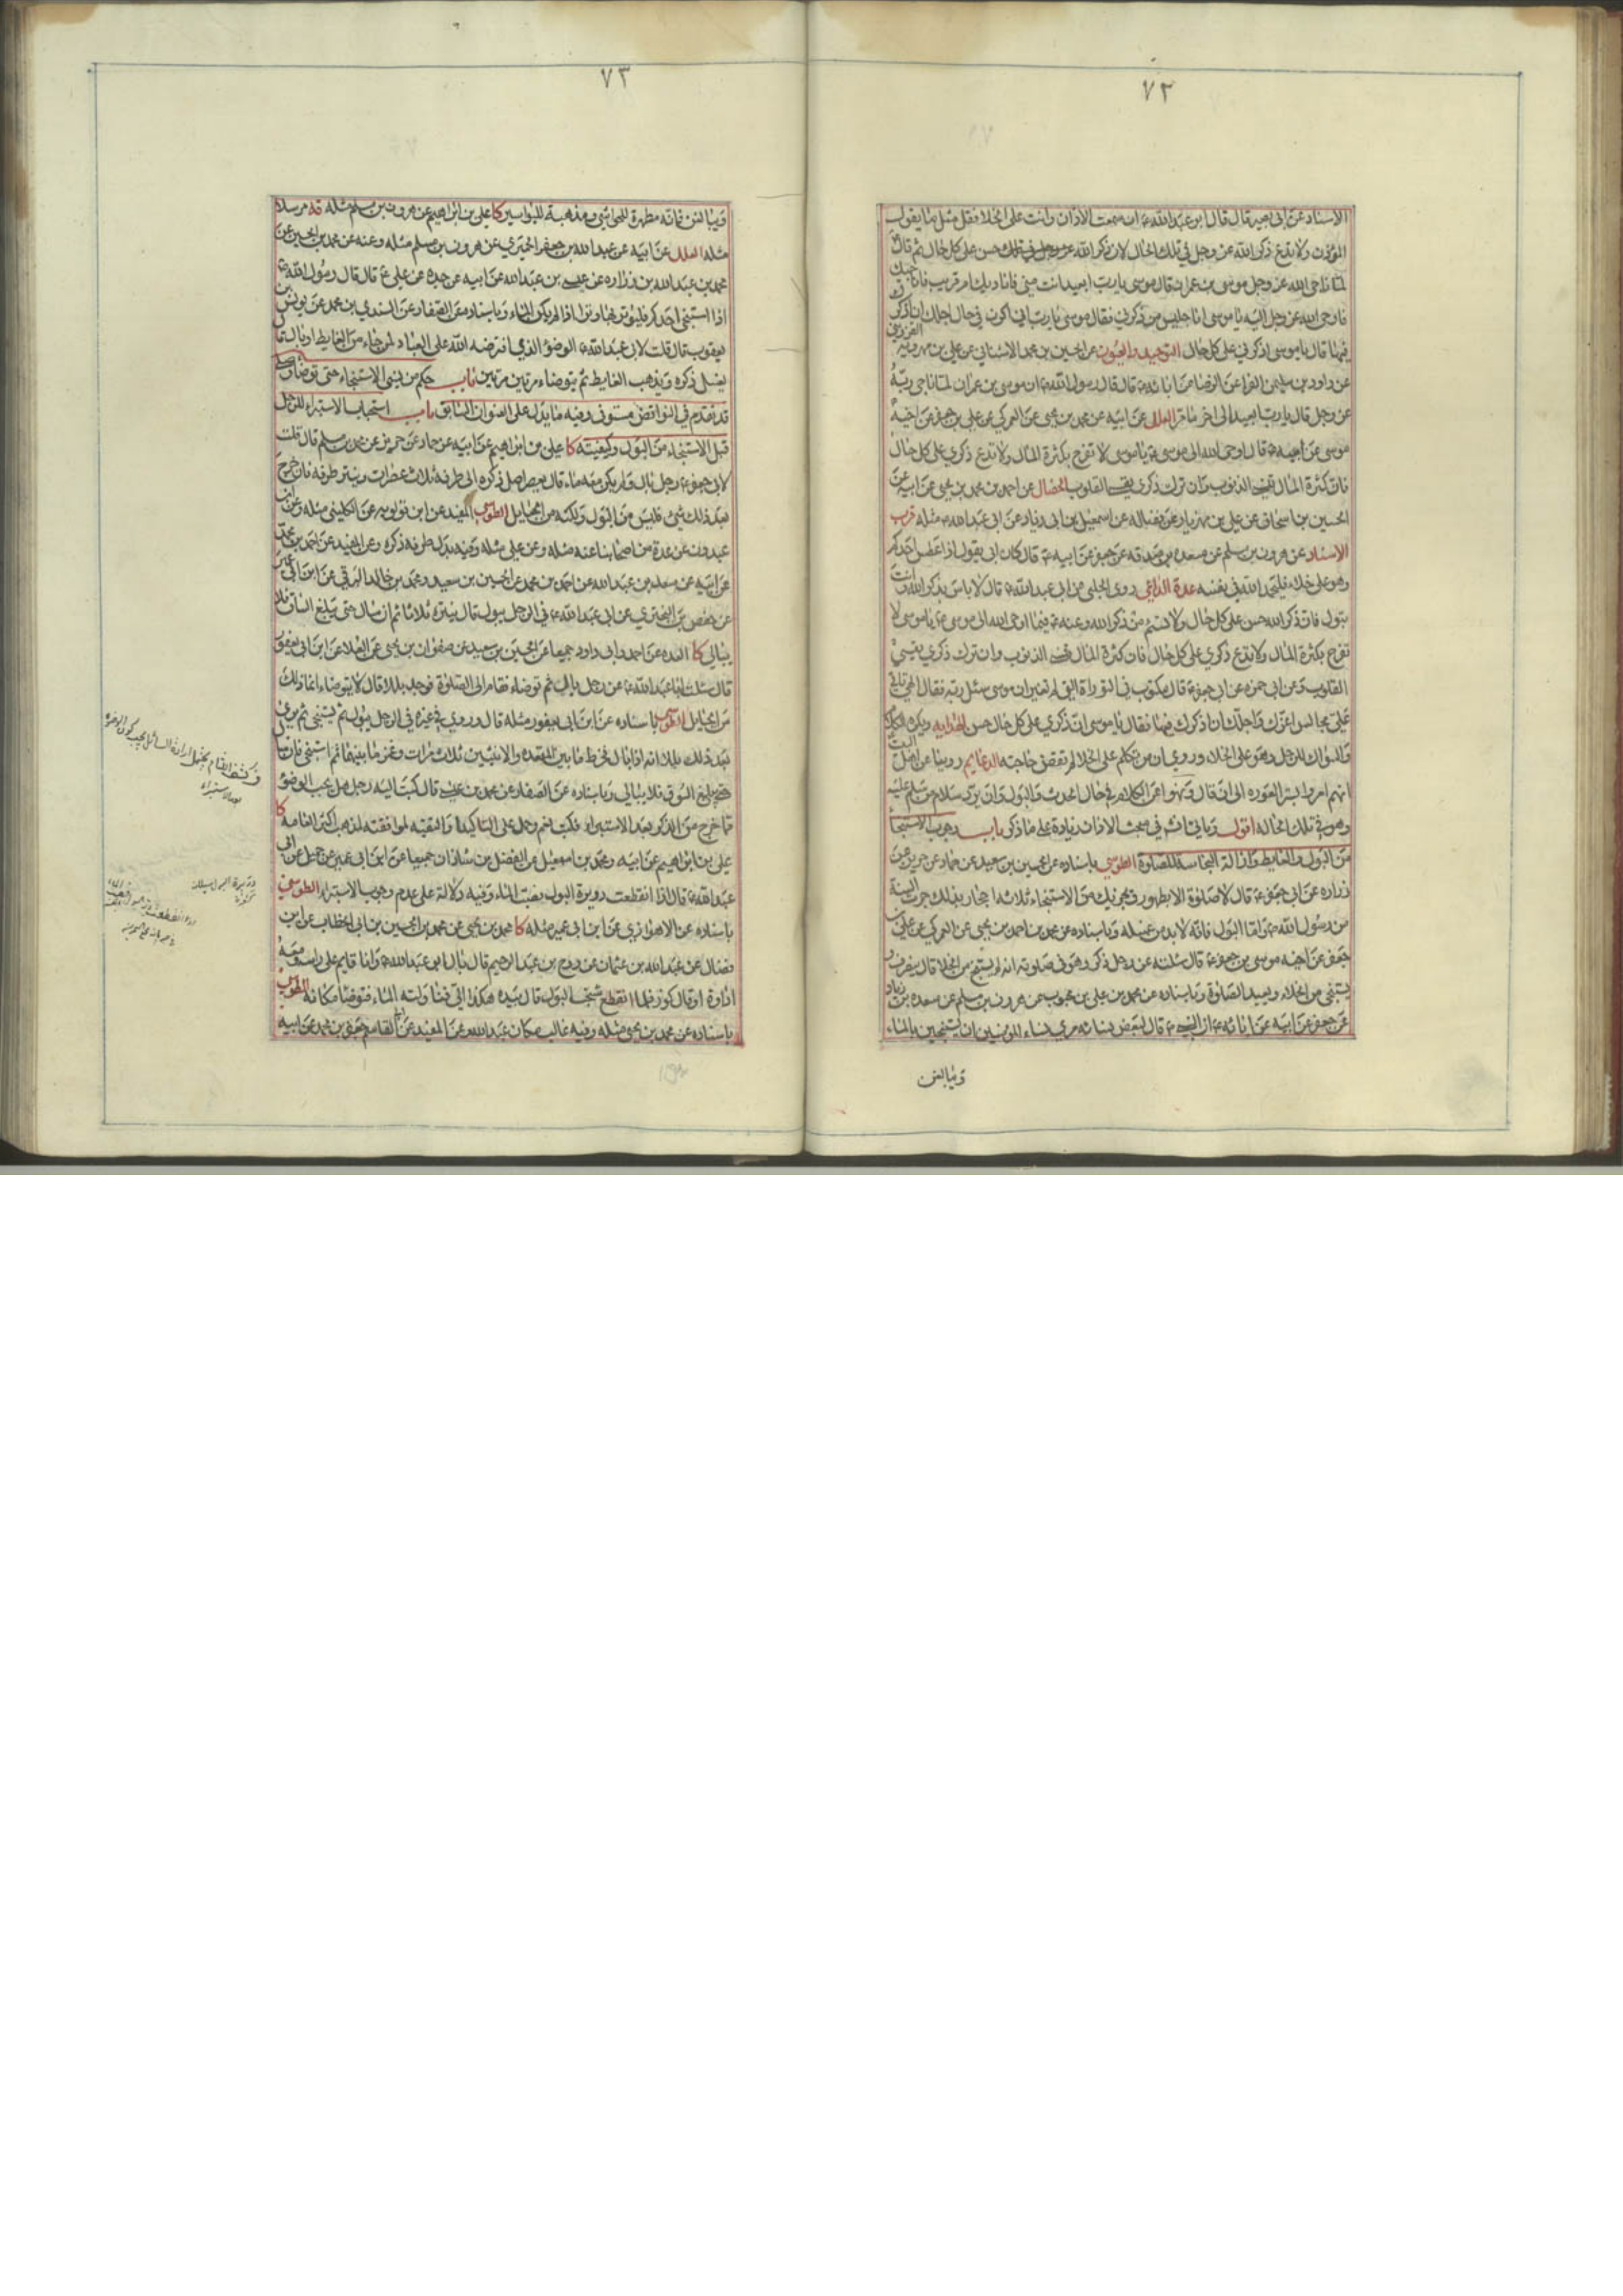 ٧٢
الاسناد عن ابى بصير قال قال ابو عبد الله ع ان سمعت الاذان وانت على الخلا فقل مثل ما يقول
المؤذن ولا تدع ذكر الله عز وجل فى تلك الحال لان ذكر الله عز وجل فى تلك حسن على كل حال ثم قال
لما ناجى الله عز وجل موسى بن عمران قال موسى يا رب ابعيد انت منى فاناديك ام قريب فاناجيك
فاوحى الله عز وجل اليه يا موسى انا جليس من ذكرنى فقال موسى يا رب انى اكون فى حال اجلك ان اذكرك
فيها قال يا موسى اذكرنى على كل حال التوحيد والعيون عن الحسين بن محمد الاشنانى عن على بن مهرويه القزوينى
عن داود بن سليمن الفرا عن الرضا عن ابائه ع قال قال رسول الله ص ان موسى بن عمران لما ناجى ربه
عز وجل قال يا رب ابعيد الى اخر ما مر العلل عن ابيه عن محمد بن يحيى عن العمركى عن على بن جعفر عن اخيه
موسى عن ابيه ع قال اوحى الله الى موسى ع يا موسى لا تفرح بكثرة المال ولا تدع ذكرى على كل حال
فان كثرة المال تنسى الذنوب وان ترك ذكرى يقسى القلوب الخصال عن احمد بن محمد بن يحيى عن ابيه عن
الحسين بن اسحاق عن على بن مهزيار عن فضاله عن اسمعيل بن ابى زياد عن ابى عبد الله ع مثله قرب
الاسناد عن هرون بن مسلم عن مسعدة بن صدقه عن جعفر عن ابيه ع قال كان ابى يقول اذا عطس احدكم
وهو على خلاء فليحمد الله فى نفسه عدة الداعى روى الحلبى عن ابى عبد الله ع قال لا باس بذكر الله وانت
تبول فان ذكر الله حسن على كل حال ولا تسئم من ذكر الله وعنه ع فيما اوحى الله الى موسى ع يا موسى لا
تفرح بكثرة المال ولا تدع ذكرى على كل حال فان كثرة المال تنسى الذنوب وان ترك ذكرى يقسى
القلوب وعن ابى حمزه عن ابى جعفر ع قال مكتوب فى التوراة التى لم تغير ان موسى سئل ربه فقال الهى ياتى
على مجالس اعزك واجلك ان اذكرك فيها فقال يا موسى ان ذكرى على كل حال حسن الهدايه ويكره الكلام
والسواك للرجل وهو على الخلاء وروى ان من تكلم على الخلا لم تقض حاجته الدعايم روينا عن اهل البيت
انهم امروا بستر العوره الى ان قال ونهوا عن الكلام فى حال الحدث والبول وان يرد سلام من سلم عليه
وهو فى تلك الحاله اقول وياتى فى مبحث الاذان زيادة على ما ذكر باب وجوب الاستنجاء
من البول والغايط وازالة النجاسة للصلوة الطوسى باسناده عن الحسين بن سعيد عن حماد عن حريز عن
زراره عن ابى جعفر ع قال لا صلوة الا بطهور ويجزيك من الاستنجاء ثلاثه احجار بذلك جرت السنة
من رسول الله ص واما البول فانه لا بد من غسله وباسناده عن محمد بن احمد بن يحيى عن العمركى عن على بن
جعفر عن اخيه موسى بن جعفر ع قال سئلته عن رجل ذكر وهو فى صلوته انه لم يستنج من الخلا قال ينصرف و
يستنجى من الخلاء ويعيد الصلوة وباسناده عن محمد بن على بن محبوب عن هرون بن مسلم عن مسعده بن زياد
عن جعفر عن ابيه عن ابائه ع ان النبى ص قال لبعض نسائه مرى نساء المؤمنين ان يستنجين بالماء
ويبالغن
٧٣
ويبالغن فانه مطهرة للحواشى ومذهبة للبواسير كا على بن ابراهيم عن هرون بن مسلم مثله قه مرسلا
مثله العلل عن ابيه عن عبد الله بن جعفر الحميرى عن هرون بن مسلم مثله وعنه عن محمد بن الحسين عن
محمد بن عبد الله بن زراره عن عيسى بن عبد الله عن ابيه عن جده عن على ع قال قال رسول الله ص
اذا استنجى احدكم فليوتر بها وترا اذا لم يكن الماء وباسناده عن الصفار عن السندى بن محمد عن يونس بن
يعقوب قال قلت لابى عبد الله ع الوضوء الذى افترضه الله على العباد لمن جاء من الغايط او بال قال
يغسل ذكره ويذهب الغايط ثم يتوضاء مرتين مرتين باب حكم من نسى الاستنجاء حتى توضا وصلى
قد تقدم فى النواقض مستوفى وفيه ما يدل على العنوان السابق باب استحباب الاستبراء للرجل
قبل الاستنجاء من البول وكيفيته كا على بن ابراهيم عن ابيه عن حماد عن حريز عن محمد بن مسلم قال قلت
لابى جعفر ع رجل بال ولم يكن معه ماء قال يعصر اصل ذكره الى طرفه ثلاث عصرات وينتر طرفه فان خرج
بعد ذلك شئ فليس من البول ولكنه من الحبايل الطوسى المفيد عن ابن قولويه عن الكلينى مثله وعن ابن
عبدون عن عدة من اصحابنا عنه مثله وعن على مثله وفيه بدل طرفه ذكره وعن المفيد عن احمد بن محمد
عن ابيه عن سعد بن عبد الله عن احمد بن محمد عن الحسين بن سعيد ومحمد بن خالد البرقى عن ابن ابى عمير
عن حفص بن البخترى عن ابى عبد الله ع فى الرجل يبول قال ينتره ثلاثا ثم ان سال حتى يبلغ الساق فلا
يبالى كا العده عن احمد وابى داود جميعا عن الحسين بن سعيد عن صفوان بن يحيى عن العلا عن ابن ابى يعفور
قال سئلت ابا عبد الله ع عن رجل بال ثم توضاء فقام الى الصلوة فوجد بللا قال لا يتوضاء انما ذلك
من الحبايل الطوسى باسناده عن ابن ابى يعفور مثله قال وروى فى غيره فى الرجل يبول ثم يستنجى ثم يرى
بعد ذلك بللا انه اذا بال فخرط ما بين المقعده والانثيين ثلاث مرات وغمز ما بينهما ثم استنجى فان سال
حتى يبلغ السوق فلا يبالى وباسناده عن الصفار عن محمد بن عيسى قال كتب اليه رجل هل يجب الوضوء
مما خرج من الذكر بعد الاستبراء فكتب نعم وحمل على التاكيد او التقيه لموافقته لمذهب اكثر العامه كا
على بن ابراهيم عن ابيه ومحمد بن اسمعيل عن الفضل بن شاذان جميعا عن ابن ابى عمير عن جميل عن ابى
عبد الله ع قال اذا انقطعت درورة البول فصب الماء وفيه دلالة على عدم وجوب الاستبراء الطوسى
باسناده عن الاهوازى عن ابن ابى عمير مثله كا محمد بن يحيى عن محمد بن الحسين بن ابى الخطاب عن ابن
فضال عن عبد الله بن عثمان عن روح بن عبد الرحيم قال بال ابو عبد الله ع وانا قايم على راسه ومعه
اداوة او قال كوز فلما انقطع شخب البول قال بيده هكذا الى فناولته الماء فتوضا مكانه الطوسى
باسناده عن محمد بن يحيى مثله وفيه غالب مكان عبد الله عن المفيد عن ابى القاسم جعفر بن محمد عن ابيه